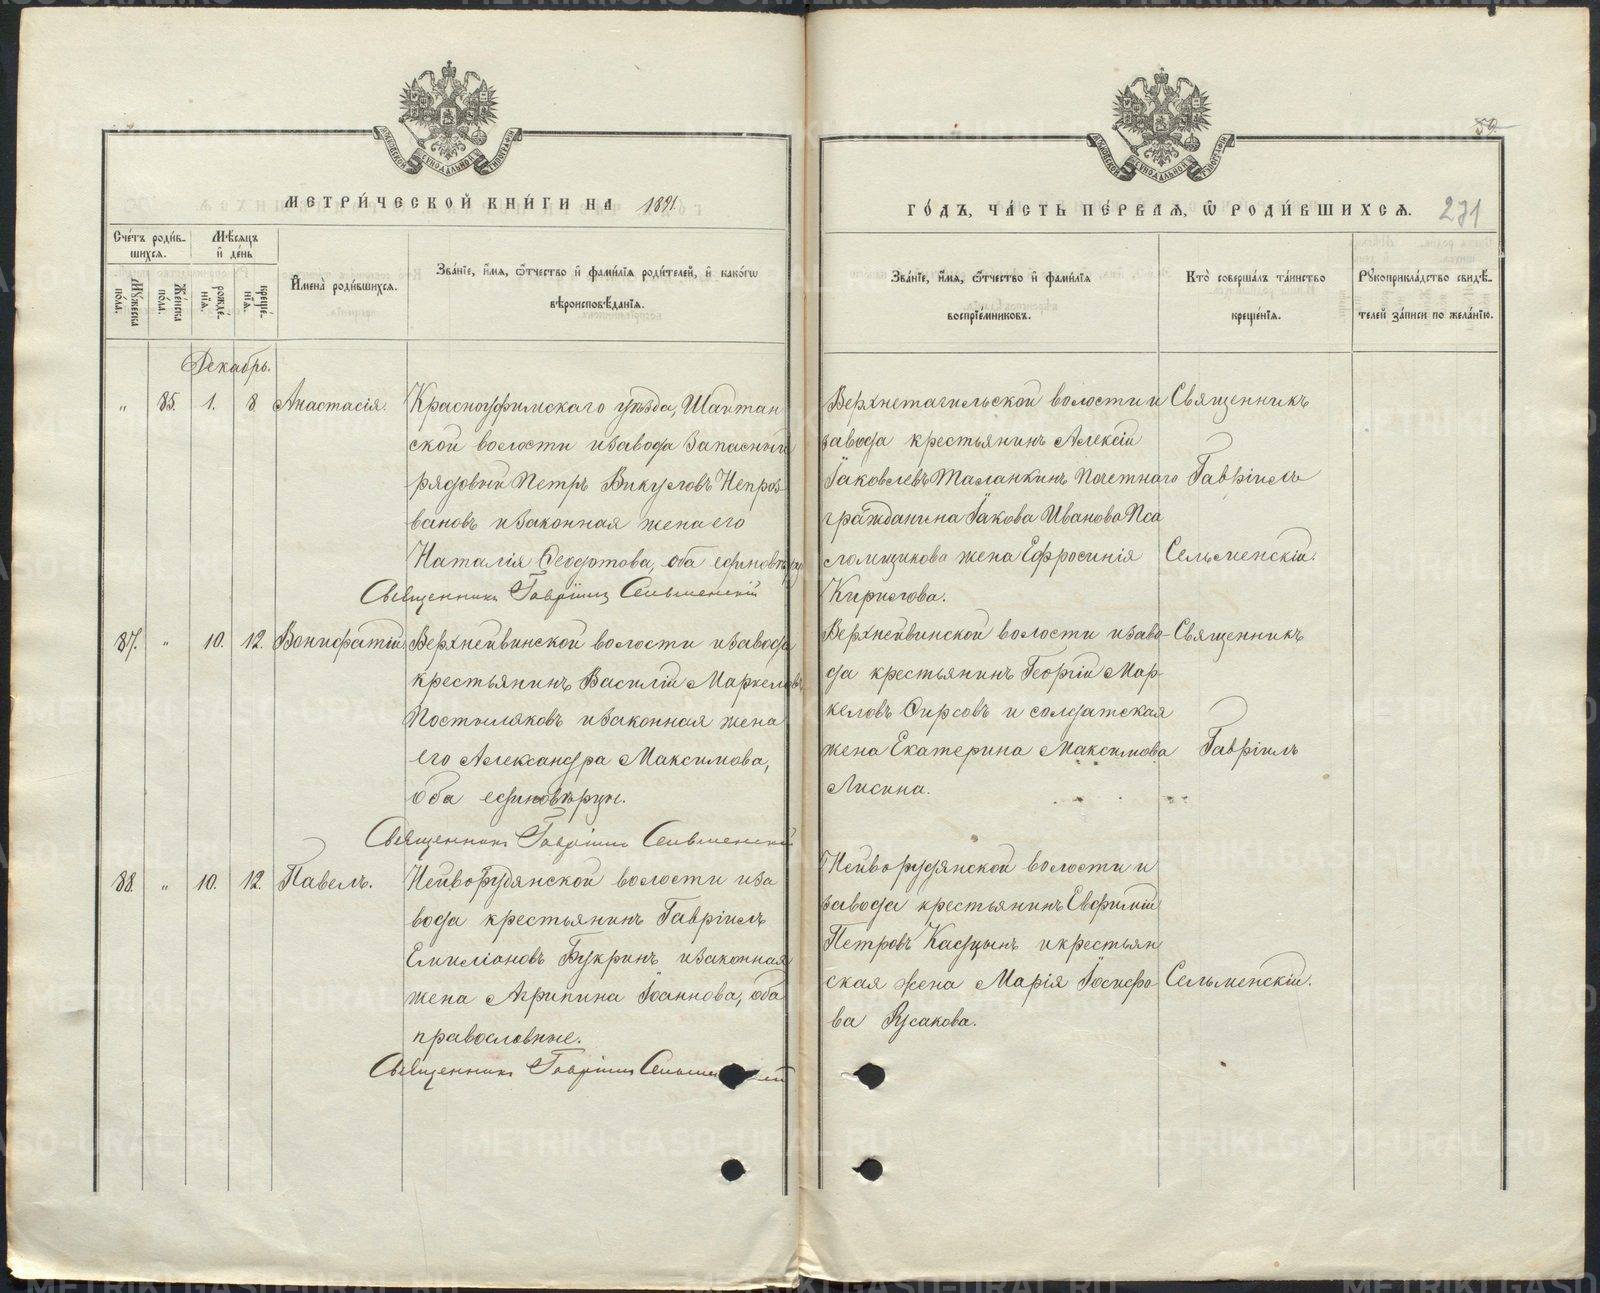 МЕТРИ́ЧЕСКОЙ КНИ́ГИ НА 1891
ГО́ДЪ, ЧА́СТЬ ПЕ́РВАѦ, Ѽ РОДИ́ВШИХСѦ. 231
59
Сче́тъ роди́в-
шихсѧ.
Мѣ́сѧцъ
и҆ де́нь
И҆мена̀ роди́вшихсѧ.
Зва́нїе, и҆́мѧ, ѻ҆́тчество и҆ фами́лїѧ роди́телей, и҆ како́гѡ
вѣроисповѣ́данїѧ.
Мꙋ́жеска
по́ла.
Же́нска
по́ла.
рожде́-
нїѧ.
креще́-
нїѧ.
Зва́нїе, и҆́мѧ, ѻ҆́тчество и҆ фами́лїѧ
воспрїе́мниковъ.
Кто̀ соверша́лъ та́инство
креще́нїѧ.
Рꙋкоприкла́дство свидѣ́-
телей за́писи по жела́нїю.
Декабрь.
„ 85. 1. 8 Анастасія.
Красноуфимскаго уѣзда, Шайтан
ской волости и завода запасный
рядовой Петръ Викуловъ Непроз
вановъ и законная жена его
Наталія Ѳеодотова, оба единовѣр
Священникъ Гавріилъ Сельменскій
Верхнетагильской волости и
завода крестьянинъ Алексій
Іаковлевъ Таланкинъ Почетнаго
гражданина Іакова Иванова Пса
ломщикова жена Ефросинія
Кирилова.
Священникъ
Гавріилъ
Сельменскій.
87. „ 10. 12. Вонифатій.
Верхнейвинской волости и завода
крестьянинъ Василій Маркеловъ
Постыляковъ и законная жена
его Александра Максимова,
оба единовѣрцы.
Священникъ Гавріилъ Сельменскій
Верхнейвинской волости и заво-
да крестьянинъ Георгій Мар-
келовъ Фирсовъ и солдатская
жена Екатерина Максимова
Лисина.
Священникъ
Гавріилъ
Сельменскій.
88. „ 10. 12. Павелъ.
Нейворудянской волости и за
вода крестьянинъ Гавріилъ
Емиліановъ Букринъ и законная
жена Агрипина Іоаннова, оба
православные.
Священникъ Гавріилъ Сельменскій
Нейворудянской волости и
завода крестьянинъ Евфимій
Петровъ Кадцынъ и крестьян
ская жена Марія Іосифо
ва Русакова.
METRIKI.GASO-URAL.RU